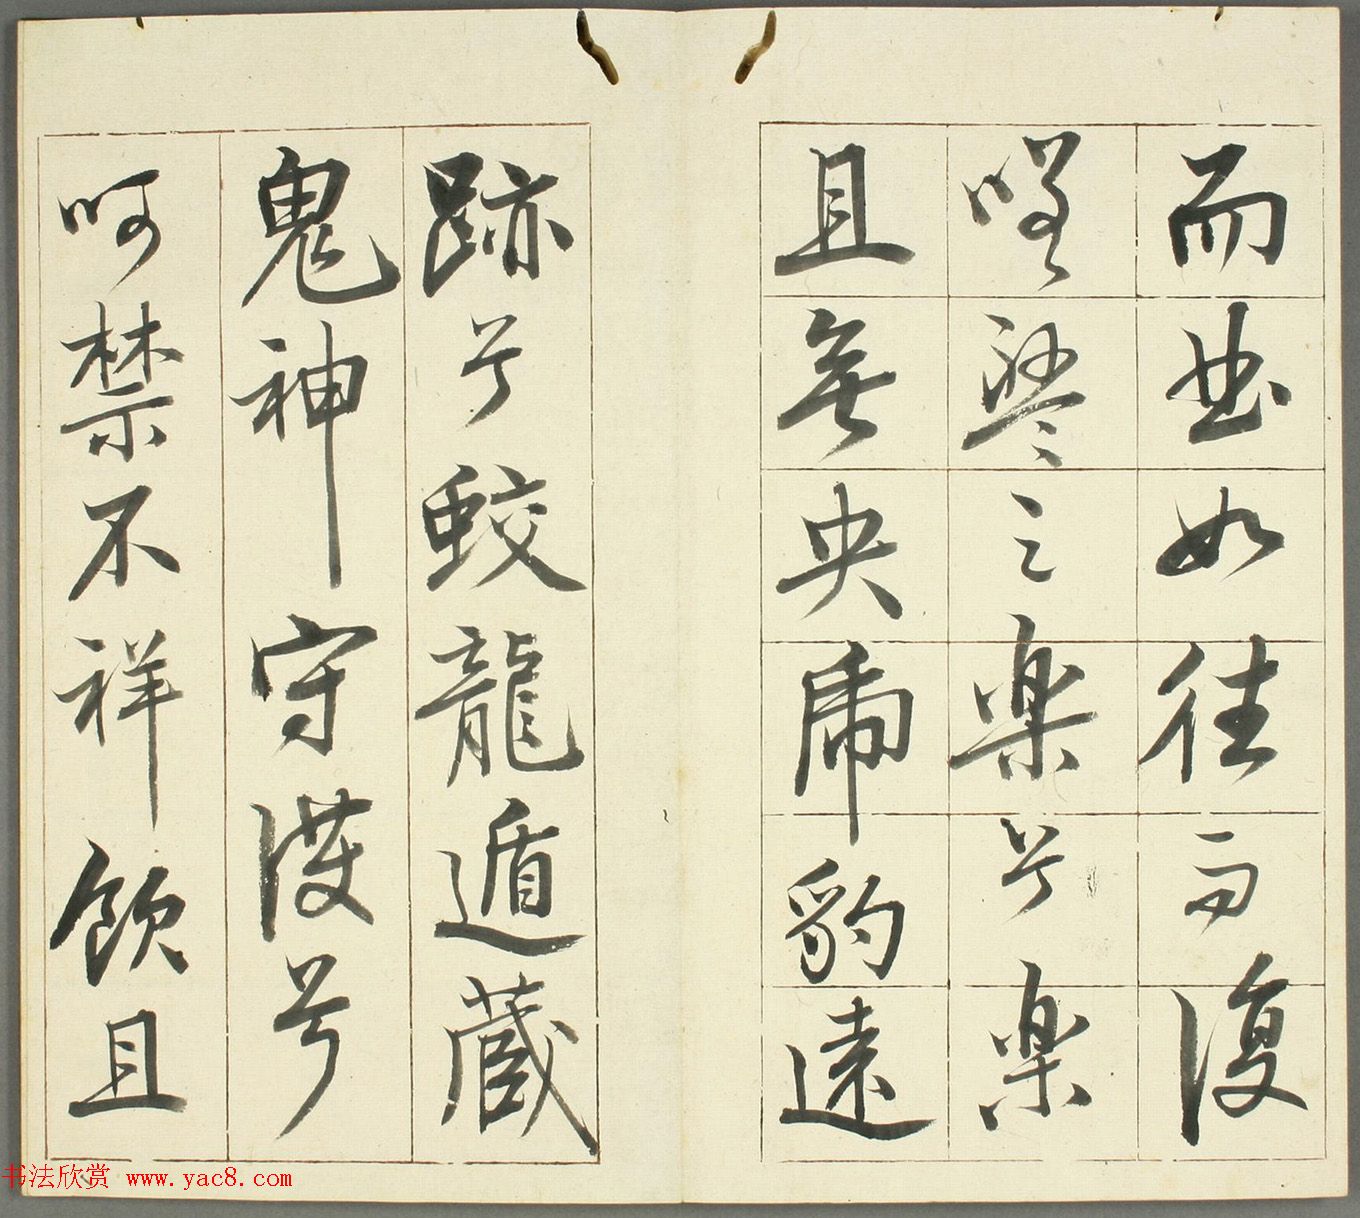 而曲如往而復
嗟盤之樂兮樂
且無央虎豹遠
跡兮蛟龍遁藏
鬼神守護兮
呵禁不祥飲且
书法欣赏 www.yac8.com